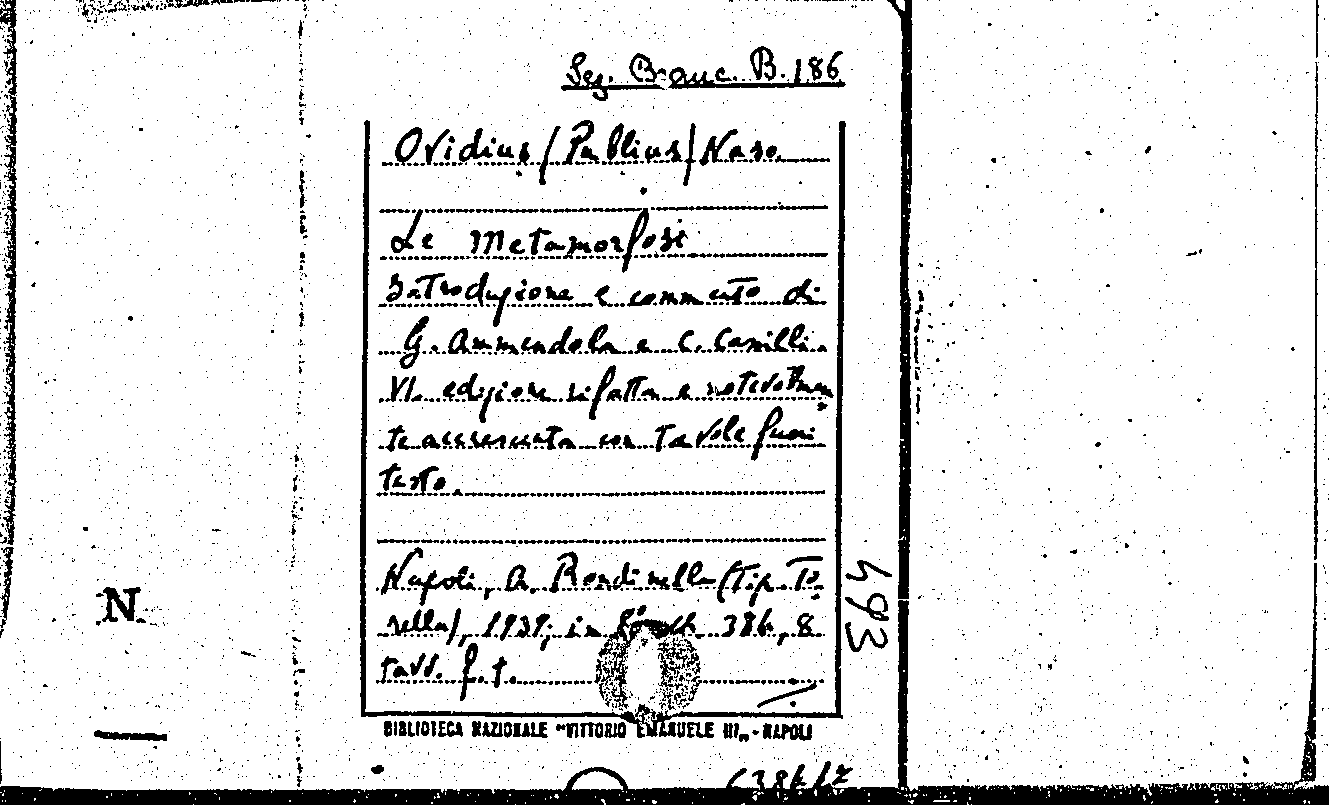 Sez. Branc. B. 186
Ovidius/Publius/Naso.
Le Metamorfosi
Introduzione e commento di
G. Ammendola e C. Camilli.
VI. edizione rifatta e notevolmen
te accresciuta con tavole fuori
testo.
Napoli, A. Rondinella (Tip. To
rella), 1939; in 8° 384, 8
tavv. f.t.
BIBLIOTECA NAZIONALE "VITTORIO EMANUELE III„ - NAPOLI
493
N